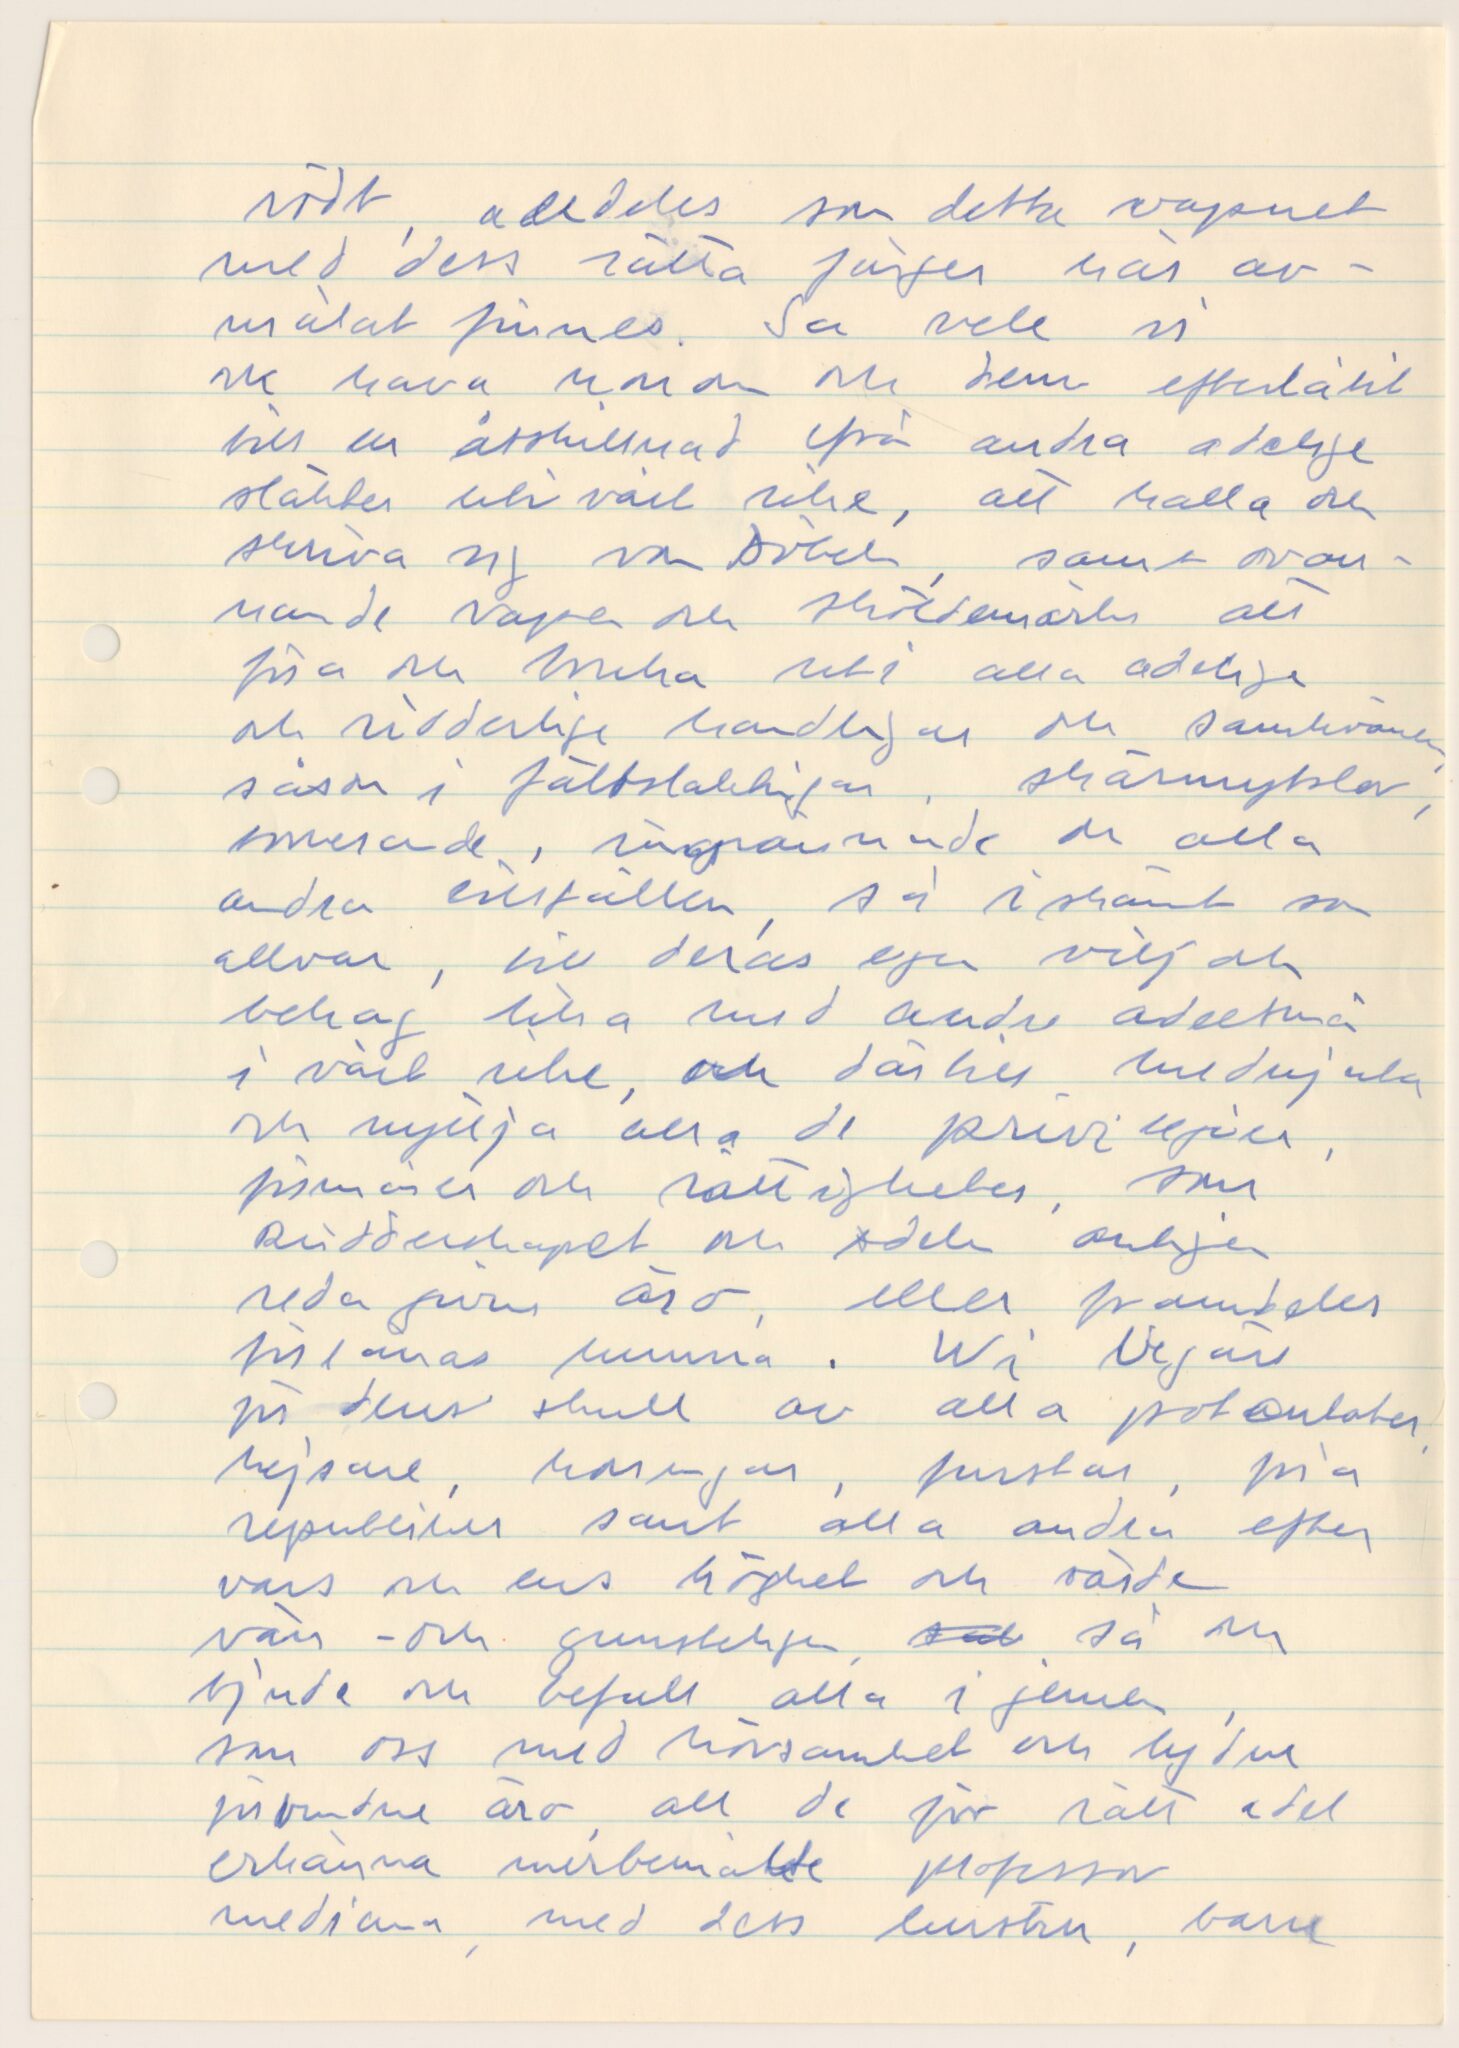 rödt, alldeles som detta vapnet
med dess rätta färger här av-
målat finnes. Så vele vi
ock hava honom och dem efterlåtit
till en åtskillnad ifrå andra adelige
släkter uti vårt rike, att kalla och
skriva sig von Döbeln, samt ovan-
nande vapen och sköldemärke att
föra och bruka uti alla adelige
och ridderlige handlingar och samkväm,
såsom i fältslaktingar, skärmytslar,
tornerande, ringrännande och alla
andra tillfällen, så i skämt som
allvar, till deras egen vilj och
behag lika med andre adelsmän
i vårt rike, och därhos mednjuta
och nyttja alla de privilegier,
förmåner och rättigheter, som
Ridderskapet och adeln antingen
reda givne äro, eller framdeles
förlänas kunna. Wi begäre
för dens skull av alla potentater,
kejsare, konungar, furstar, fria
republiker samt alla andra efter
vars och ens höghet och värde
vän- och gunsteligen, så och
bjude och befalle alla i gemen,
som oss med hörsamhet och lydne
förbundne äro, att de för rätt adel
erkänna merbemälte professor
medicinæ, med dess hustru, barn